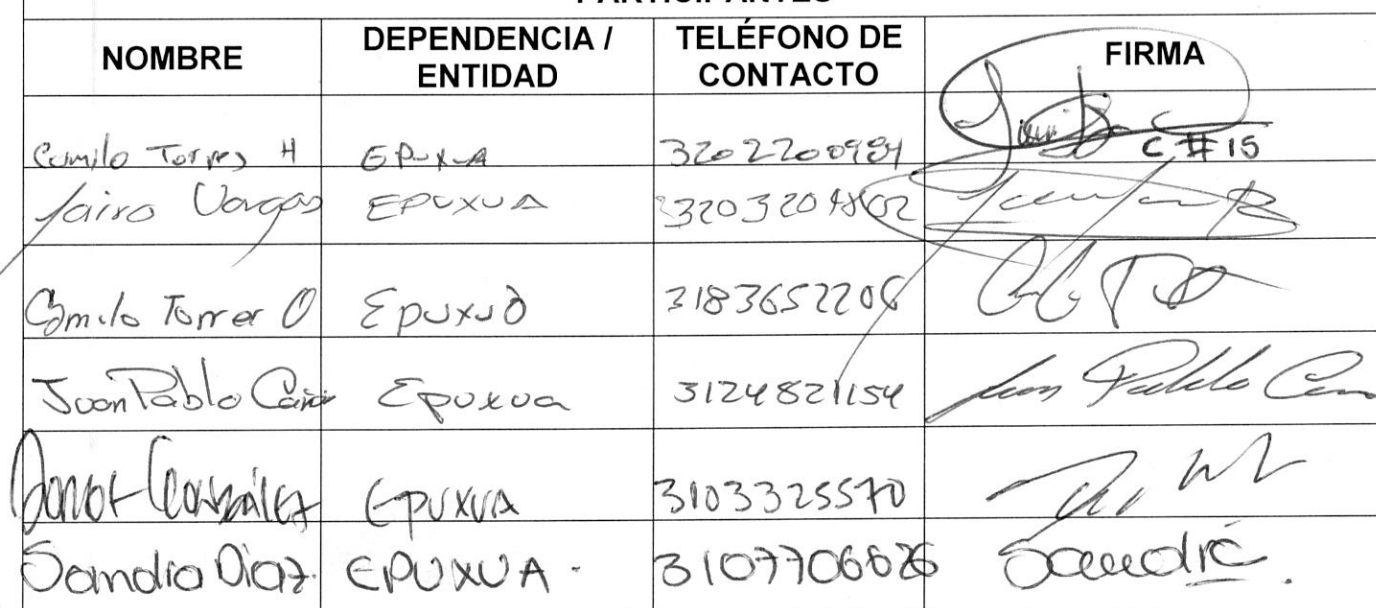 PARTICIPANTES
NOMBRE DEPENDENCIA / ENTIDAD TELÉFONO DE CONTACTO FIRMA
Camilo Torres H EPUXUA 3202200984 C #15
Jairo Vargas EPUXUA
Camilo Torres O Epuxua 3183652206
Juan Pablo Epuxua 3124821154 Juan Pablo
González EPUXUA 3103325570
Sandra Diaz. EPUXUA. 3107706626 Sandra.